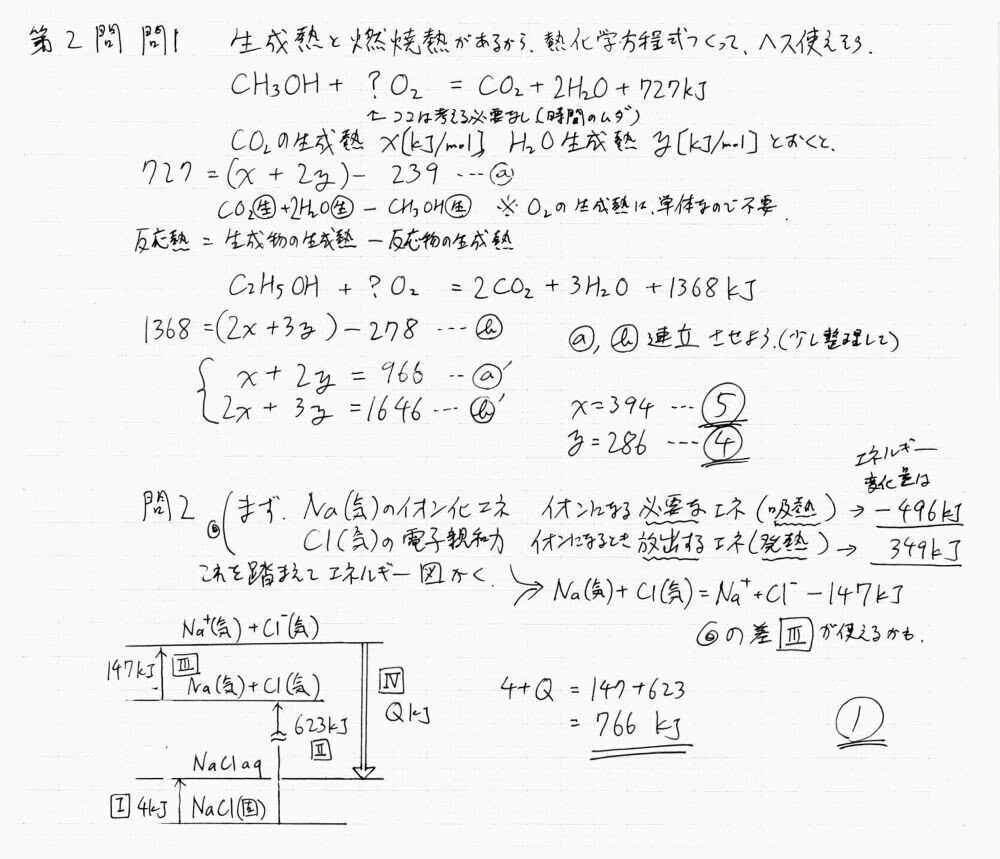 第2問 問1 生成熱と燃焼熱があるから、熱化学方程式つくって、ヘス使えそう.
CH3OH + ?O2 = CO2 + 2H2O + 727kJ
↑ ココは考える必要なし(時間のムダ)
CO2の生成熱 x[kJ/mol] H2O生成熱 y[kJ/mol] とおくと、
727 = (x + 2y) - 239 … ⓐ
CO2㊤+2H2O㊤ - CH3OH㊤ ※ O2の生成熱は、単体なので不要.
反応熱 = 生成物の生成熱 - 反応物の生成熱
C2H5OH + ?O2 = 2CO2 + 3H2O + 1368kJ
1368 = (2x + 3y) - 278 … ⓑ
ⓐ, ⓑ 連立させよう.(少し整理して)
x + 2y = 966 … ⓐ'
2x + 3y = 1646 … ⓑ'
x = 394 … ⑤
y = 286 … ④
問2 まず. Na(気)のイオン化エネ イオンになる必要なエネ(吸熱) → -496kJ
エネルギー
変化量は
Cl(気)の電子親和力 イオンになるとき放出するエネ(発熱) → 349kJ
これを踏まえてエネルギー図かく.
→ Na(気) + Cl(気) = Na+ + Cl- - 147kJ
の差 Ⅲ が使えるかも.
Na+(気) + Cl-(気)
147kJ Ⅲ
Na(気) + Cl(気)
Ⅳ
QkJ
623kJ
Ⅱ
NaClaq
Ⅰ 4kJ NaCl(固)
4+Q = 147+623
= 766 kJ
①